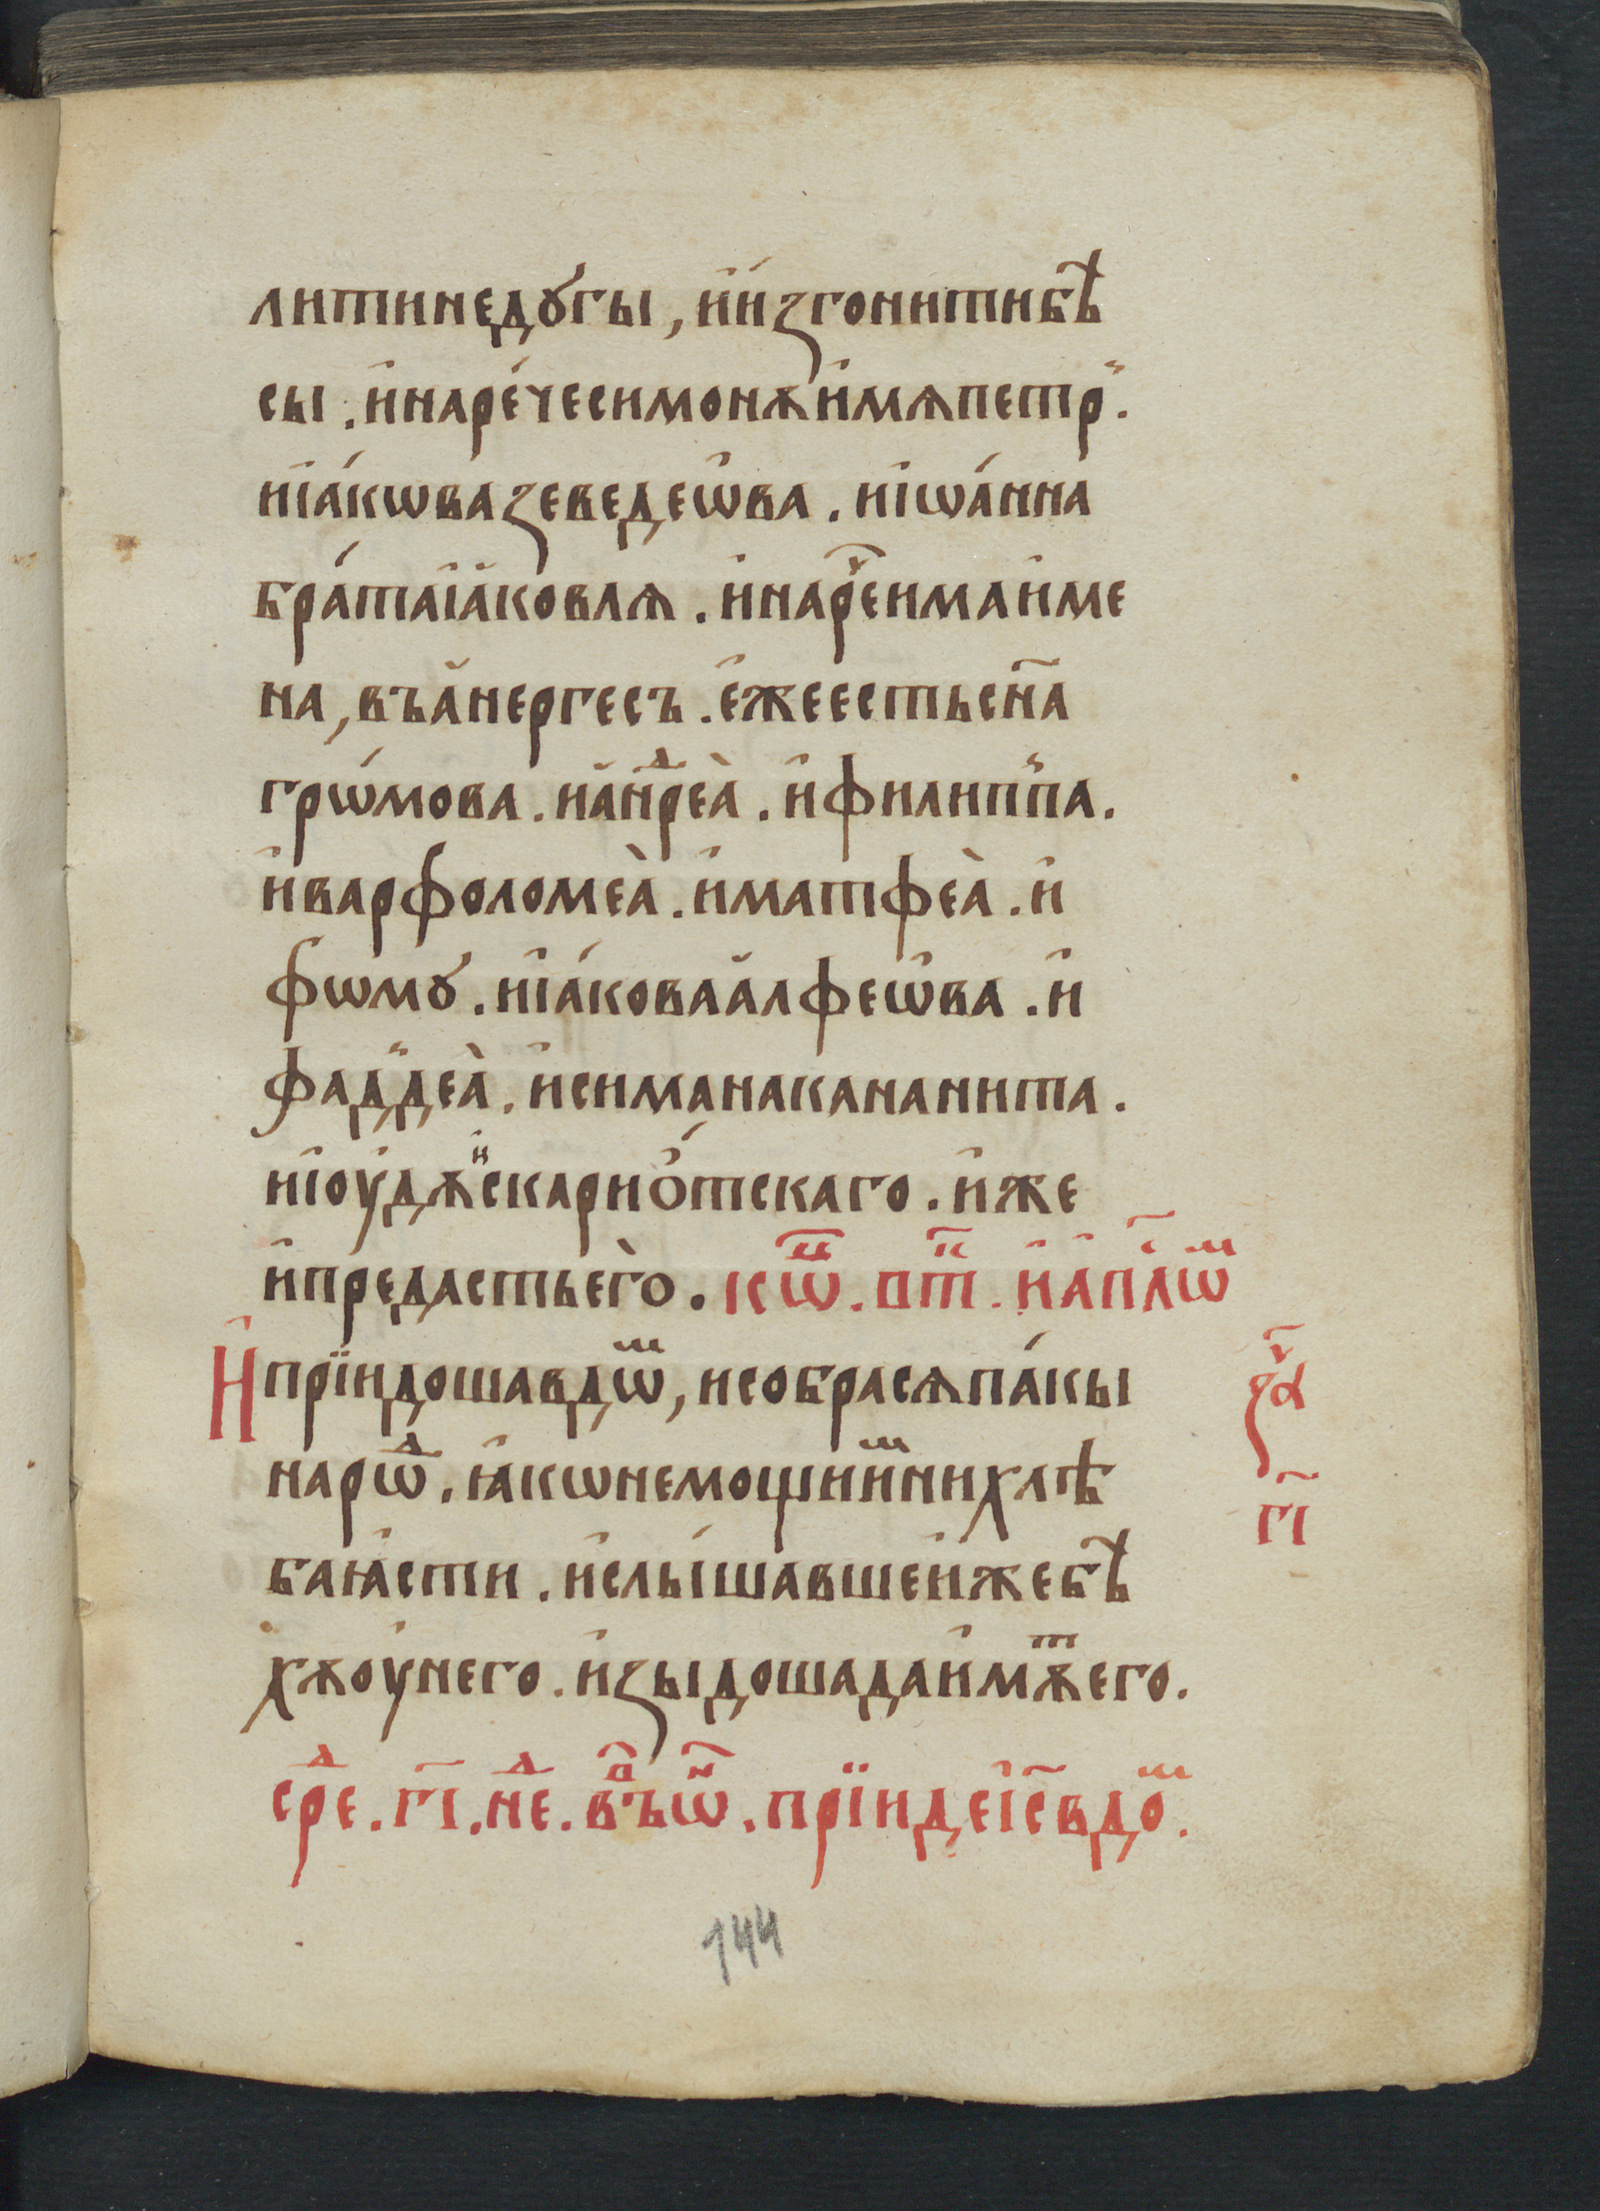 литинедꙋгы, ии҆згонитибѣ
сы. и҆наре́чесимонѫи҆мѧпетр̾.
иі҆а́кѡваꙁеведеѡ҆ва. иі҆ѡа́нна
бра́таіа҆ковлѧ. и҆нарⷱ҇еимаи҆ме
на, въа҆нергесъ. е҆жеестьсн҃а
грѡ́мова. иа҆нⷣреа̀. и҆филип̾па.
и҆варфоломеа̀. и҆матфеа̀. и҆
фѡмꙋ. иі҆а́коваа҆лфеѡ҆ва. и҆
фад̾деа̀. и҆симанакананита.
иі҆оудѫи҆скарио́тскаго. и҆же
и҆предастьего̀. кѡⷩ҇ц. пт҃к. и҆ а҆пⷭ҇лѡⷨ
И҆прїидошавдѡⷨ, исобрасѧпа́кы
нарѡⷣ. ꙗ҆конемощиимⷨнихлѣ
баꙗ҆сти. и҆слы́шавшеи҆жебѣ
хѫоунего. и҆ꙁыдошадаи҆мѫⷮего.
срⷣе. г҃і. нⷣе. въⷫ҇ѡⷩ҇. прїидеі҆с҃вдоⷨ.
ꙁⷱ҇а
г҃і
144